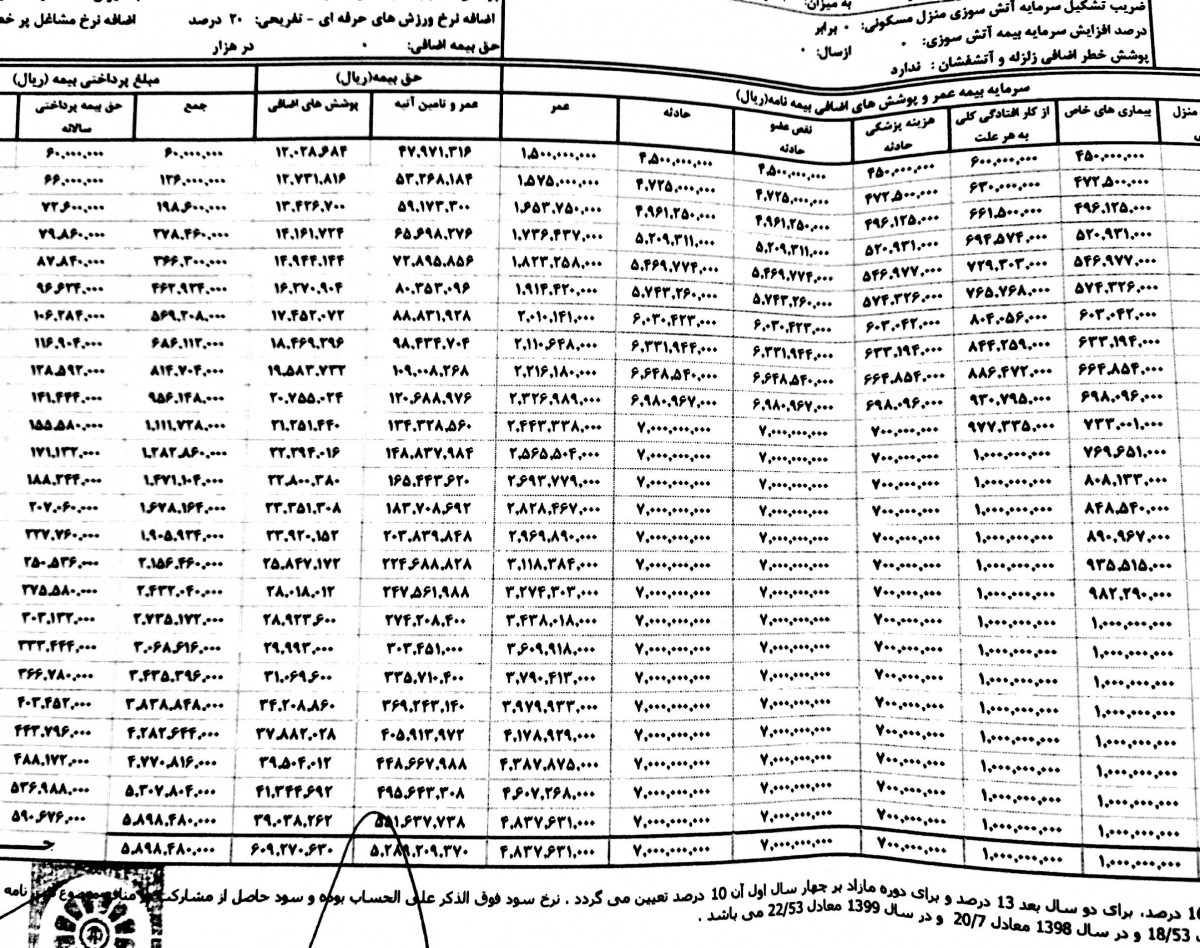 ضریب تشکیل سرمایه آتش سوزی منزل مسکونی: ۰ برابر
به میزان:
درصد افزایش سرمایه بیمه آتش سوزی: ۰
ازسال: ۰
پوشش خطر اضافی زلزله و آتشفشان : ندارد
اضافه نرخ ورزش های حرفه ای - تفریحی: ۲۰ درصد
حق بیمه اضافی: ۰ در هزار
اضافه نرخ مشاغل پر خط
سرمایه بیمه عمر و پوشش های اضافی بیمه نامه(ریال) حق بیمه(ریال) مبلغ پرداختی بیمه (ریال)
منزل بیماری های خاص از کار افتادگی کلی به هر علت هزینه پزشکی حادثه نقص عضو حادثه حادثه عمر عمر و تامین آتیه پوشش های اضافی جمع حق بیمه پرداختی سالانه
۴۵۰,۰۰۰,۰۰۰ ۶۰۰,۰۰۰,۰۰۰ ۴۵۰,۰۰۰,۰۰۰ ۴,۵۰۰,۰۰۰,۰۰۰ ۴,۵۰۰,۰۰۰,۰۰۰ ۱,۵۰۰,۰۰۰,۰۰۰ ۴۷,۹۷۱,۳۱۶ ۱۲,۰۲۸,۶۸۴ ۶۰,۰۰۰,۰۰۰ ۶۰,۰۰۰,۰۰۰
۴۷۲,۵۰۰,۰۰۰ ۶۳۰,۰۰۰,۰۰۰ ۴۷۲,۵۰۰,۰۰۰ ۴,۷۲۵,۰۰۰,۰۰۰ ۴,۷۲۵,۰۰۰,۰۰۰ ۱,۵۷۵,۰۰۰,۰۰۰ ۵۳,۲۶۸,۱۸۴ ۱۲,۷۳۱,۸۱۶ ۱۲۶,۰۰۰,۰۰۰ ۶۶,۰۰۰,۰۰۰
۴۹۶,۱۲۵,۰۰۰ ۶۶۱,۵۰۰,۰۰۰ ۴۹۶,۱۲۵,۰۰۰ ۴,۹۶۱,۲۵۰,۰۰۰ ۴,۹۶۱,۲۵۰,۰۰۰ ۱,۶۵۳,۷۵۰,۰۰۰ ۵۹,۱۷۳,۳۰۰ ۱۳,۴۲۶,۷۰۰ ۱۹۸,۶۰۰,۰۰۰ ۷۲,۶۰۰,۰۰۰
۵۲۰,۹۳۱,۰۰۰ ۶۹۴,۵۷۴,۰۰۰ ۵۲۰,۹۳۱,۰۰۰ ۵,۲۰۹,۳۱۱,۰۰۰ ۵,۲۰۹,۳۱۱,۰۰۰ ۱,۷۳۶,۴۳۷,۰۰۰ ۶۵,۶۹۸,۲۷۶ ۱۴,۱۶۱,۷۲۴ ۲۷۸,۴۶۰,۰۰۰ ۷۹,۸۶۰,۰۰۰
۵۴۶,۹۷۷,۰۰۰ ۷۲۹,۳۰۳,۰۰۰ ۵۴۶,۹۷۷,۰۰۰ ۵,۴۶۹,۷۷۴,۰۰۰ ۵,۴۶۹,۷۷۴,۰۰۰ ۱,۸۲۳,۲۵۸,۰۰۰ ۷۲,۸۹۵,۸۵۶ ۱۴,۹۴۴,۱۴۴ ۳۶۶,۳۰۰,۰۰۰ ۸۷,۸۴۰,۰۰۰
۵۷۴,۳۲۶,۰۰۰ ۷۶۵,۷۶۸,۰۰۰ ۵۷۴,۳۲۶,۰۰۰ ۵,۷۴۳,۲۶۰,۰۰۰ ۵,۷۴۳,۲۶۰,۰۰۰ ۱,۹۱۴,۴۲۰,۰۰۰ ۸۰,۳۵۳,۰۹۶ ۱۶,۲۷۰,۹۰۴ ۴۶۲,۹۲۴,۰۰۰ ۹۶,۶۲۴,۰۰۰
۶۰۳,۰۴۲,۰۰۰ ۸۰۴,۰۵۶,۰۰۰ ۶۰۳,۰۴۲,۰۰۰ ۶,۰۳۰,۴۲۳,۰۰۰ ۶,۰۳۰,۴۲۳,۰۰۰ ۲,۰۱۰,۱۴۱,۰۰۰ ۸۸,۸۳۱,۹۲۸ ۱۷,۴۵۲,۰۷۲ ۵۶۹,۲۰۸,۰۰۰ ۱۰۶,۲۸۴,۰۰۰
۶۳۳,۱۹۴,۰۰۰ ۸۴۴,۲۵۹,۰۰۰ ۶۳۳,۱۹۴,۰۰۰ ۶,۳۳۱,۹۴۴,۰۰۰ ۶,۳۳۱,۹۴۴,۰۰۰ ۲,۱۱۰,۶۴۸,۰۰۰ ۹۸,۴۳۴,۷۰۴ ۱۸,۴۶۹,۲۹۶ ۶۸۶,۱۱۲,۰۰۰ ۱۱۶,۹۰۴,۰۰۰
۶۶۴,۸۵۴,۰۰۰ ۸۸۶,۴۷۲,۰۰۰ ۶۶۴,۸۵۴,۰۰۰ ۶,۶۴۸,۵۴۰,۰۰۰ ۶,۶۴۸,۵۴۰,۰۰۰ ۲,۲۱۶,۱۸۰,۰۰۰ ۱۰۹,۰۰۸,۲۶۸ ۱۹,۵۸۳,۷۳۲ ۸۱۴,۷۰۴,۰۰۰ ۱۲۸,۵۹۲,۰۰۰
۶۹۸,۰۹۶,۰۰۰ ۹۳۰,۷۹۵,۰۰۰ ۶۹۸,۰۹۶,۰۰۰ ۶,۹۸۰,۹۶۷,۰۰۰ ۶,۹۸۰,۹۶۷,۰۰۰ ۲,۳۲۶,۹۸۹,۰۰۰ ۱۲۰,۶۸۸,۹۷۶ ۲۰,۷۵۵,۰۲۴ ۹۵۶,۱۴۸,۰۰۰ ۱۴۱,۴۴۴,۰۰۰
۷۳۳,۰۰۱,۰۰۰ ۹۷۷,۳۳۵,۰۰۰ ۷۰۰,۰۰۰,۰۰۰ ۷,۰۰۰,۰۰۰,۰۰۰ ۷,۰۰۰,۰۰۰,۰۰۰ ۲,۴۴۳,۳۳۸,۰۰۰ ۱۳۴,۳۲۸,۵۶۰ ۲۱,۲۵۱,۴۴۰ ۱,۱۱۱,۷۲۸,۰۰۰ ۱۵۵,۵۸۰,۰۰۰
۷۶۹,۶۵۱,۰۰۰ ۱,۰۰۰,۰۰۰,۰۰۰ ۷۰۰,۰۰۰,۰۰۰ ۷,۰۰۰,۰۰۰,۰۰۰ ۷,۰۰۰,۰۰۰,۰۰۰ ۲,۵۶۵,۵۰۴,۰۰۰ ۱۴۸,۸۳۷,۹۸۴ ۲۲,۲۹۴,۰۱۶ ۱,۲۸۲,۸۶۰,۰۰۰ ۱۷۱,۱۳۲,۰۰۰
۸۰۸,۱۳۳,۰۰۰ ۱,۰۰۰,۰۰۰,۰۰۰ ۷۰۰,۰۰۰,۰۰۰ ۷,۰۰۰,۰۰۰,۰۰۰ ۷,۰۰۰,۰۰۰,۰۰۰ ۲,۶۹۳,۷۷۹,۰۰۰ ۱۶۵,۴۴۳,۶۲۰ ۲۲,۸۰۰,۳۸۰ ۱,۴۷۱,۱۰۴,۰۰۰ ۱۸۸,۲۴۴,۰۰۰
۸۴۸,۵۴۰,۰۰۰ ۱,۰۰۰,۰۰۰,۰۰۰ ۷۰۰,۰۰۰,۰۰۰ ۷,۰۰۰,۰۰۰,۰۰۰ ۷,۰۰۰,۰۰۰,۰۰۰ ۲,۸۲۸,۴۶۷,۰۰۰ ۱۸۳,۷۰۸,۶۹۲ ۲۳,۳۵۱,۳۰۸ ۱,۶۷۸,۱۶۴,۰۰۰ ۲۰۷,۰۶۰,۰۰۰
۸۹۰,۹۶۷,۰۰۰ ۱,۰۰۰,۰۰۰,۰۰۰ ۷۰۰,۰۰۰,۰۰۰ ۷,۰۰۰,۰۰۰,۰۰۰ ۷,۰۰۰,۰۰۰,۰۰۰ ۲,۹۶۹,۸۹۰,۰۰۰ ۲۰۳,۸۳۹,۸۴۸ ۲۳,۹۲۰,۱۵۲ ۱,۹۰۵,۹۲۴,۰۰۰ ۲۲۷,۷۶۰,۰۰۰
۹۳۵,۵۱۵,۰۰۰ ۱,۰۰۰,۰۰۰,۰۰۰ ۷۰۰,۰۰۰,۰۰۰ ۷,۰۰۰,۰۰۰,۰۰۰ ۷,۰۰۰,۰۰۰,۰۰۰ ۳,۱۱۸,۳۸۴,۰۰۰ ۲۲۴,۶۸۸,۸۲۸ ۲۵,۸۴۷,۱۷۲ ۲,۱۵۶,۴۶۰,۰۰۰ ۲۵۰,۵۳۶,۰۰۰
۹۸۲,۲۹۰,۰۰۰ ۱,۰۰۰,۰۰۰,۰۰۰ ۷۰۰,۰۰۰,۰۰۰ ۷,۰۰۰,۰۰۰,۰۰۰ ۷,۰۰۰,۰۰۰,۰۰۰ ۳,۲۷۴,۳۰۳,۰۰۰ ۲۴۷,۵۶۱,۹۸۸ ۲۸,۰۱۸,۰۱۲ ۲,۴۳۲,۰۴۰,۰۰۰ ۲۷۵,۵۸۰,۰۰۰
۱,۰۰۰,۰۰۰,۰۰۰ ۱,۰۰۰,۰۰۰,۰۰۰ ۷۰۰,۰۰۰,۰۰۰ ۷,۰۰۰,۰۰۰,۰۰۰ ۷,۰۰۰,۰۰۰,۰۰۰ ۳,۴۳۸,۰۱۸,۰۰۰ ۲۷۴,۲۰۸,۴۰۰ ۲۸,۹۲۳,۶۰۰ ۲,۷۳۵,۱۷۲,۰۰۰ ۳۰۳,۱۳۲,۰۰۰
۱,۰۰۰,۰۰۰,۰۰۰ ۱,۰۰۰,۰۰۰,۰۰۰ ۷۰۰,۰۰۰,۰۰۰ ۷,۰۰۰,۰۰۰,۰۰۰ ۷,۰۰۰,۰۰۰,۰۰۰ ۳,۶۰۹,۹۱۸,۰۰۰ ۳۰۳,۴۵۱,۰۰۰ ۲۹,۹۹۳,۰۰۰ ۳,۰۶۸,۶۱۶,۰۰۰ ۳۳۳,۴۴۴,۰۰۰
۱,۰۰۰,۰۰۰,۰۰۰ ۱,۰۰۰,۰۰۰,۰۰۰ ۷۰۰,۰۰۰,۰۰۰ ۷,۰۰۰,۰۰۰,۰۰۰ ۷,۰۰۰,۰۰۰,۰۰۰ ۳,۷۹۰,۴۱۳,۰۰۰ ۳۳۵,۷۱۰,۴۰۰ ۳۱,۰۶۹,۶۰۰ ۳,۴۳۵,۳۹۶,۰۰۰ ۳۶۶,۷۸۰,۰۰۰
۱,۰۰۰,۰۰۰,۰۰۰ ۱,۰۰۰,۰۰۰,۰۰۰ ۷۰۰,۰۰۰,۰۰۰ ۷,۰۰۰,۰۰۰,۰۰۰ ۷,۰۰۰,۰۰۰,۰۰۰ ۳,۹۷۹,۹۳۳,۰۰۰ ۳۶۹,۲۴۳,۱۴۰ ۳۴,۲۰۸,۸۶۰ ۳,۸۳۸,۸۴۸,۰۰۰ ۴۰۳,۴۵۲,۰۰۰
۱,۰۰۰,۰۰۰,۰۰۰ ۱,۰۰۰,۰۰۰,۰۰۰ ۷۰۰,۰۰۰,۰۰۰ ۷,۰۰۰,۰۰۰,۰۰۰ ۷,۰۰۰,۰۰۰,۰۰۰ ۴,۱۷۸,۹۲۹,۰۰۰ ۴۰۵,۹۱۳,۹۷۲ ۳۷,۸۸۲,۰۲۸ ۴,۲۸۲,۶۴۴,۰۰۰ ۴۴۳,۷۹۶,۰۰۰
۱,۰۰۰,۰۰۰,۰۰۰ ۱,۰۰۰,۰۰۰,۰۰۰ ۷۰۰,۰۰۰,۰۰۰ ۷,۰۰۰,۰۰۰,۰۰۰ ۷,۰۰۰,۰۰۰,۰۰۰ ۴,۳۸۷,۸۷۵,۰۰۰ ۴۴۸,۶۶۷,۹۸۸ ۳۹,۵۰۴,۰۱۲ ۴,۷۷۰,۸۱۶,۰۰۰ ۴۸۸,۱۷۲,۰۰۰
۱,۰۰۰,۰۰۰,۰۰۰ ۱,۰۰۰,۰۰۰,۰۰۰ ۷۰۰,۰۰۰,۰۰۰ ۷,۰۰۰,۰۰۰,۰۰۰ ۷,۰۰۰,۰۰۰,۰۰۰ ۴,۶۰۷,۲۶۸,۰۰۰ ۴۹۵,۶۴۳,۳۰۸ ۴۱,۳۴۴,۶۹۲ ۵,۳۰۷,۸۰۴,۰۰۰ ۵۳۶,۹۸۸,۰۰۰
۱,۰۰۰,۰۰۰,۰۰۰ ۱,۰۰۰,۰۰۰,۰۰۰ ۷۰۰,۰۰۰,۰۰۰ ۷,۰۰۰,۰۰۰,۰۰۰ ۷,۰۰۰,۰۰۰,۰۰۰ ۴,۸۳۷,۶۳۱,۰۰۰ ۵۵۱,۶۳۷,۷۳۸ ۳۹,۰۳۸,۲۶۲ ۵,۸۹۸,۴۸۰,۰۰۰ ۵۹۰,۶۷۶,۰۰۰
۱,۰۰۰,۰۰۰,۰۰۰ ۱,۰۰۰,۰۰۰,۰۰۰ ۷۰۰,۰۰۰,۰۰۰ ۷,۰۰۰,۰۰۰,۰۰۰ ۷,۰۰۰,۰۰۰,۰۰۰ ۴,۸۳۷,۶۳۱,۰۰۰ ۵,۲۸۹,۲۰۹,۳۷۰ ۶۰۹,۲۷۰,۶۳۰ ۵,۸۹۸,۴۸۰,۰۰۰
درصد، برای دو سال بعد 13 درصد و برای دوره مازاد بر چهار سال اول آن 10 درصد تعیین می گردد . نرخ سود فوق الذکر علی الحساب بوده و سود حاصل از مشارکت در منافع موضوع نامه
18/53 و در سال 1398 معادل 20/7 و در سال 1399 معادل 22/53 می باشد .